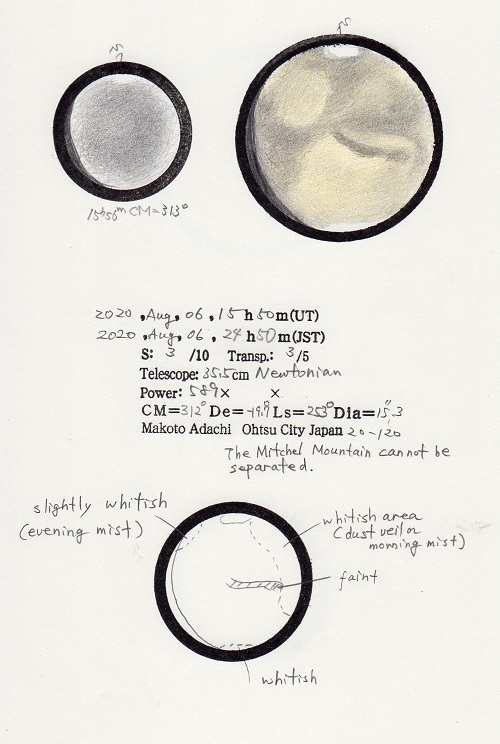 S
S
15h56m CM=313°
2020, Aug, 06, 15h50m(UT)
2020, Aug, 06, 24h50m(JST)
S: 3 /10 Transp.: 3/5
Telescope: 35.5cm Newtonian
Power: 589× ×
CM=312° De=-19.9° Ls=253° Dia=15".3
Makoto Adachi Ohtsu City Japan 20-120
The Mitchel Mountain cannot be
separated.
slightly whitish
(evening mist)
whitish area
(dust veil or
morning mist)
faint
whitish